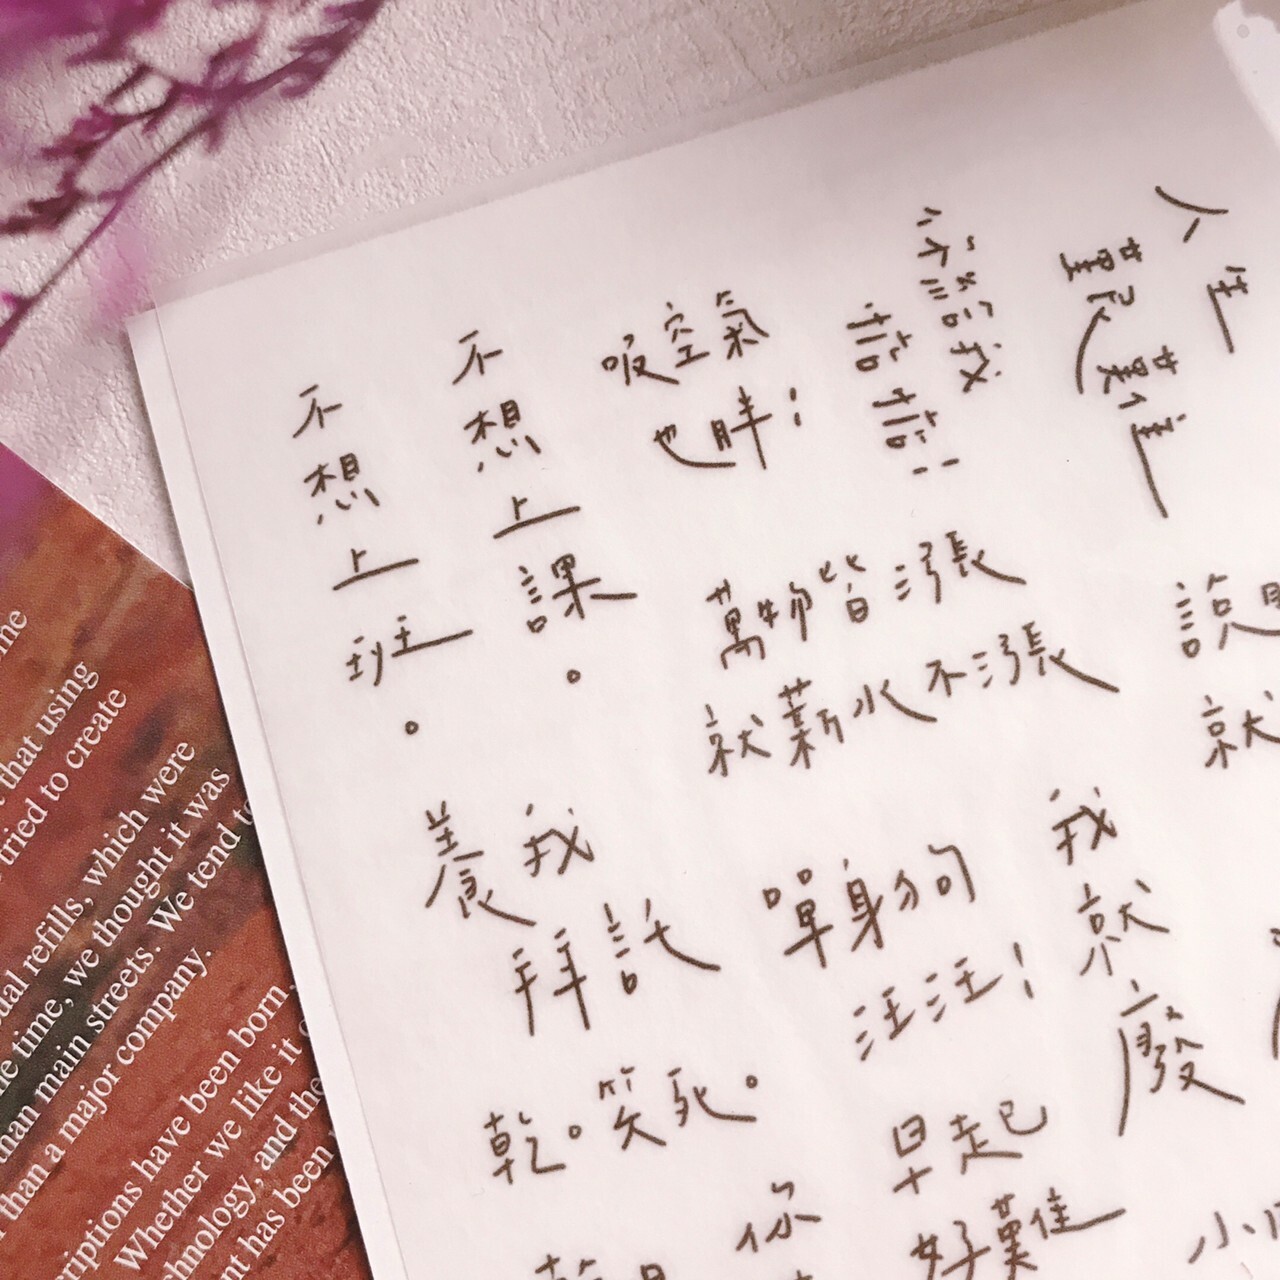 不想上班。
不想上課。
吸空氣
也胖！
人生
艱難
萬物皆漲
就薪水不漲
我
養
拜託
單身狗
汪汪！
我就廢
乾。笑死。
早起
好難
你
就
that using
tried to create
ual refills, which were
e time, we thought it was
han main streets. We tend to
than a major company.
criptions have been born
Whether we like it
chnology, and the
nt has been